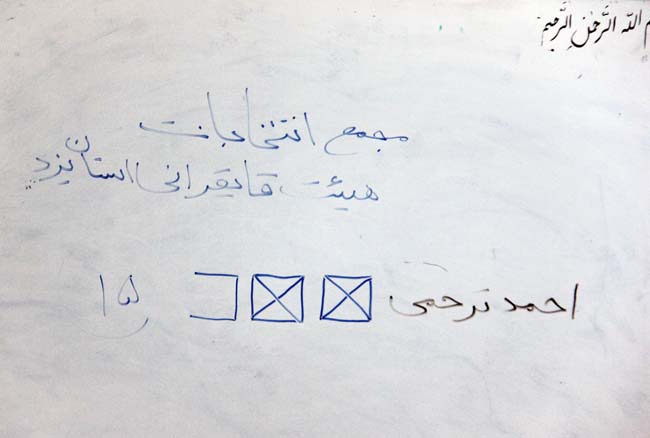 م الله الرَّحْمٰنِ الرَّحِيمِ
مجمع انتخابات
هیئت قایقرانی استان یزد
احمد ترحمی ۱۵